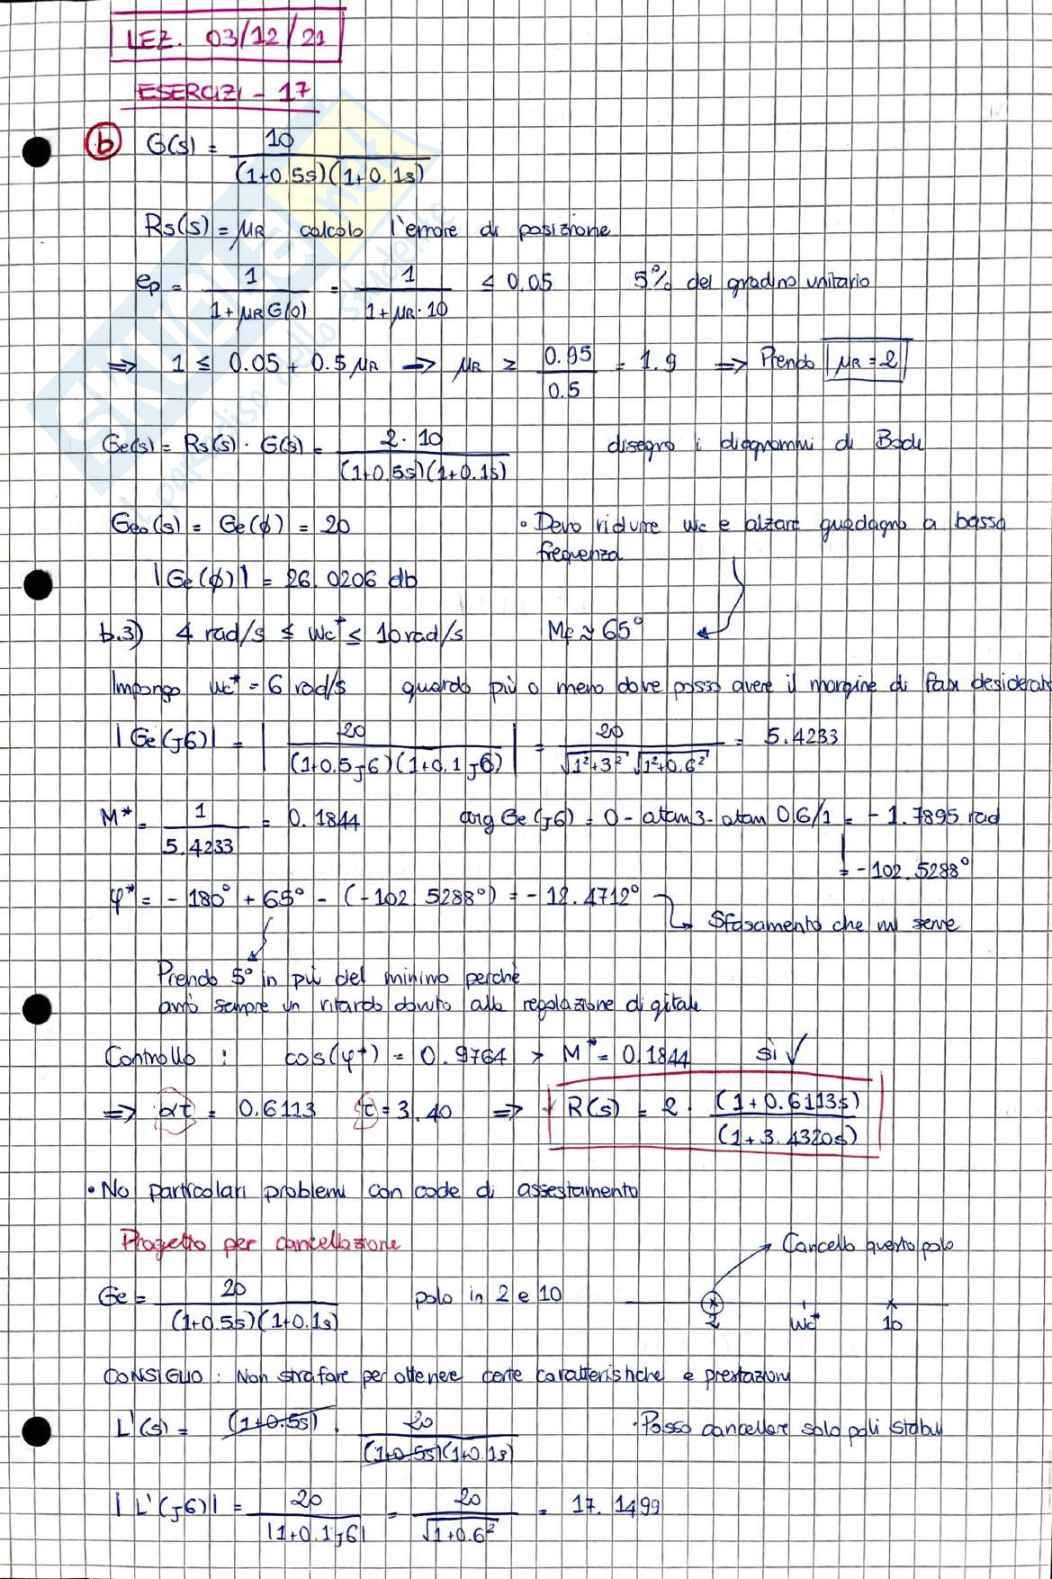 LEZ. 03/12/21
ESERCIZI - 17
b G(s) = 10 / (1+0.5s)(1+0.1s)
Rs(s) = μR calcolo l'errore di posizione
ep = 1 / 1+μR G(0) = 1 / 1+μR·10 ≤ 0.05 5% del gradino unitario
⇒ 1 ≤ 0.05 + 0.5 μR → μR ≥ 0.95 / 0.5 = 1.9 ⇒ Prendo μR = 2
Ge(s) = Rs(s) · G(s) = 2·10 / (1+0.5s)(1+0.1s) disegno i diagrammi di Bode
Geo(s) = Ge(ϕ) = 20 • Devo ridurre wc e alzare guadagno a bassa
frequenza
|Ge(ϕ)| = 26.0206 db
b.3) 4 rad/s ≤ wc* ≤ 10 rad/s Mf ≈ 65°
Impongo wc* = 6 rad/s guardo più o meno dove posso avere il margine di fase desiderato
|Ge(j6)| = | 20 / (1+0.5j6)(1+0.1j6) | = 20 / √1²+3² √1²+0.6² = 5.4233
M* = 1 / 5.4233 = 0.1844 arg Ge(j6) = 0 - atan3 - atan 0.6/1 = -1.7895 rad
= -102.5288°
φ* = -180° + 65° - (-102.5288°) = -12.4712° Sfasamento che mi serve
Prendo 5° in più del minimo perchè
avrò sempre un ritardo dovuto alla regolazione digitale
Controllo : cos(φ*) = 0.9764 > M* = 0.1844 sì ✓
⇒ ατ = 0.6113 τ = 3.40 ⇒ R(s) = 2 · (1+0.6113s) / (1+3.4320s)
• No particolari problemi con code di assestamento
Progetto per cancellazione
Cancello questo polo
Ge = 20 / (1+0.5s)(1+0.1s) polo in 2 e 10
2 wc* 10
CONSIGLIO : Non strafare per ottenere certe caratteristiche e prestazioni
L'(s) = (1+0.5s) · 20 / (1+0.5s)(1+0.1s) • Posso cancellare solo poli stabili
|L'(j6)| = 20 / |1+0.1j6| = 20 / √1+0.6² = 17.1499